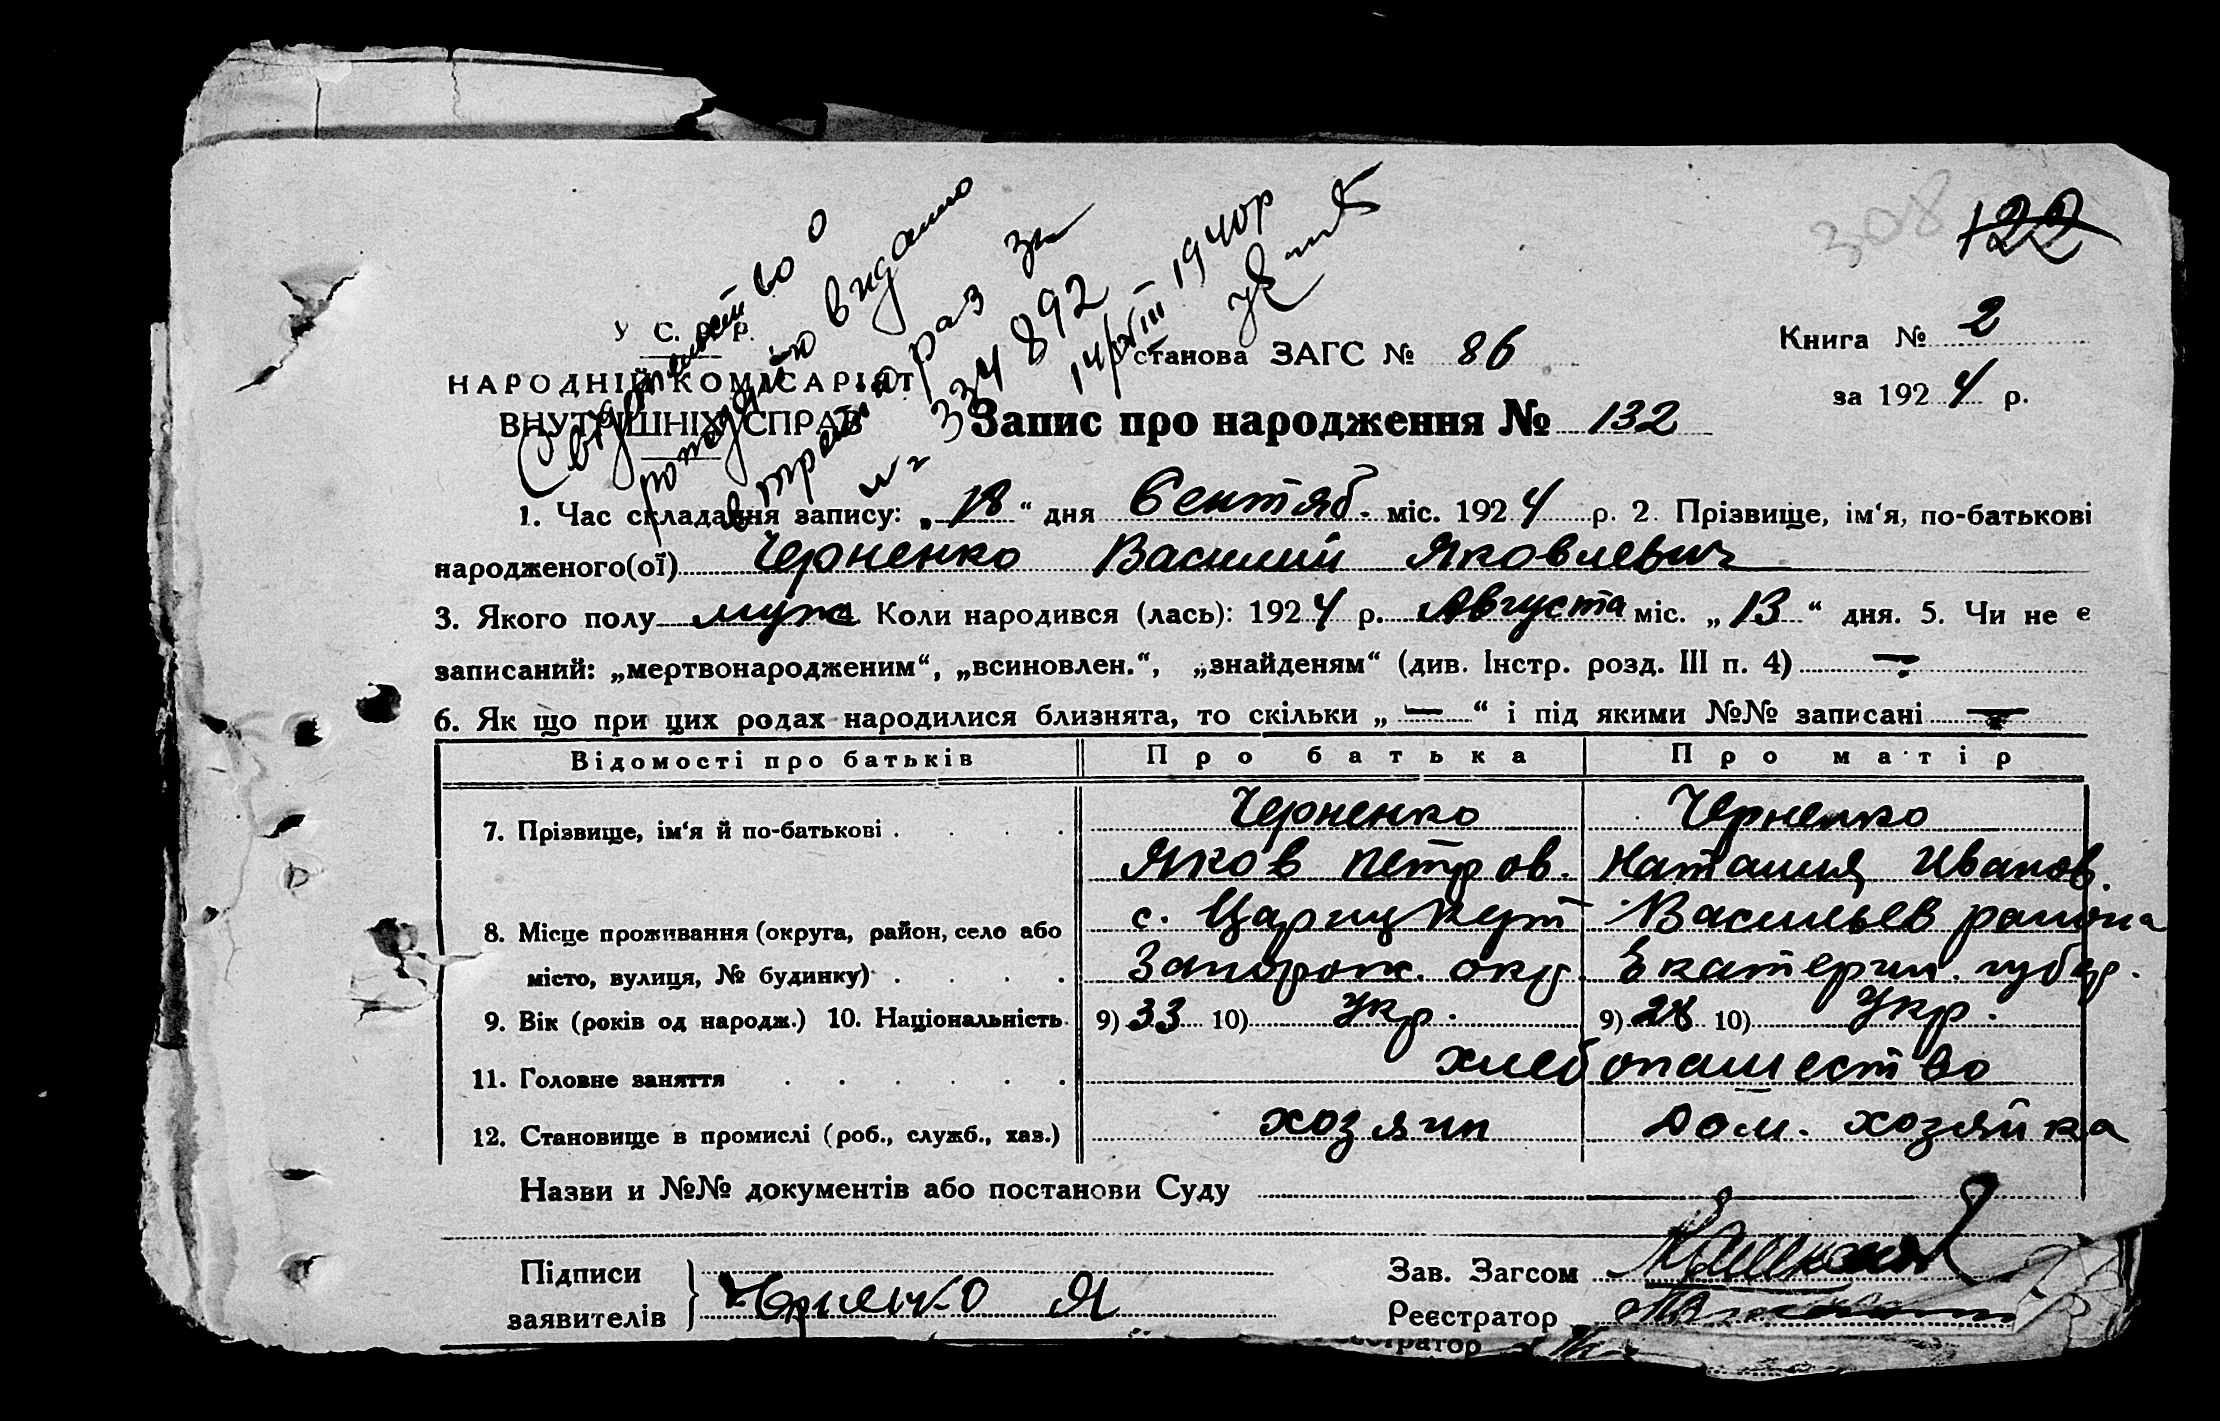 308 122
Свідоцтво о
рождению видано
вторично раз за
№ 334892
14/VIII 1940р
У С. Р. Р.
НАРОДНІЙ КОМІСАРІЯТ
ВНУТРІШНІХ СПРАВ
Установа ЗАГС № 86
Книга № 2
за 1924 р.
Запис про народження № 132
1. Час складання запису: „18“ дня Сентяб. міс. 1924 р. 2. Прізвище, ім‘я, по-батькові
народженого(ої) Черненко Василий Яковлевич
3. Якого полу муж 4. Коли народився (лась): 1924 р. Августа міс. „13“ дня. 5. Чи не є
записаний: „мертвонародженим“, „всиновлен.“, „знайденям“ (див. Інстр. розд. III п. 4) —
6. Як що при цих родах народилися близнята, то скільки „ — “ і під якими №№ записані —
Відомості про батьків Про батька Про матір
7. Прізвище, ім‘я й по-батькові . . . . Черненко Черненко
Яков Петров. Наталия Иванов.
8. Місце проживання (округа, район, село або с. Царицкут Васильев района
місто, вулиця, № будинку) . . . . Запорож. окр. Екатерин. губер.
9. Вік (років од народж.) 10. Національність 9) 33 10) Укр. 9) 28 10) Укр.
11. Головне заняття . . . . . . хлебопашество
12. Становище в промислі (роб., служб., хаз.) хозяин Дом. хозяйка
Назви и №№ документів або постанови Суду
Підписи
заявителів Черненко Я
Зав. Загсом
Реєстратор